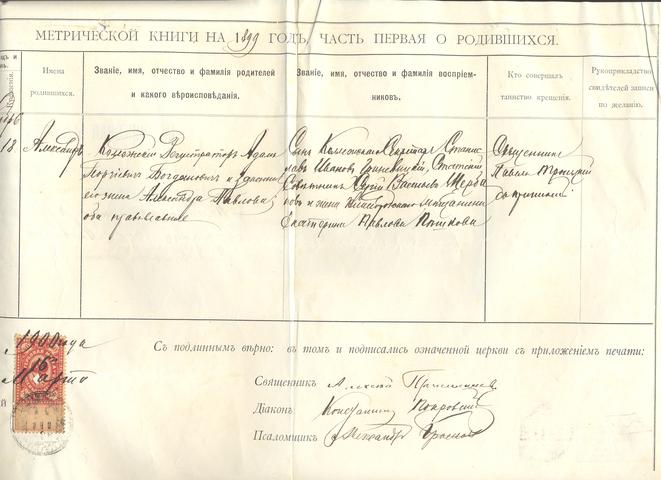 МЕТРИЧЕСКОЙ КНИГИ НА 1899 ГОДЪ, ЧАСТЬ ПЕРВАЯ О РОДИВШИХСЯ.
Имена
родившихся.
Званіе, имя, отчество и фамилія родителей
и какого вѣроисповѣданія.
Званіе, имя, отчество и фамилія воспріем-
никовъ.
Кто совершалъ
таинство крещенія.
Рукоприкладство
свидѣтелей записи
по желанію.
18
Александръ
Коллежскій Регистраторъ Адамъ
Богдановичъ и законная
его жена Александра Павлова
оба православные
Сынъ Коллежскаго Секретаря Станис
лавъ Ивановъ Статскій
Совѣтникъ Сергій Васильевъ Щерба
ковъ и жена Нижегородскаго мѣщанина
Екатерина Павлова
Священникъ
Павелъ Троицкій
съ причтомъ
1900 года
Марта
16
Съ подлиннымъ вѣрно: въ томъ и подписались означенной церкви съ приложеніемъ печати:
Священникъ Алексѣй
Діаконъ Константинъ Покровскій
Псаломщикъ Александръ